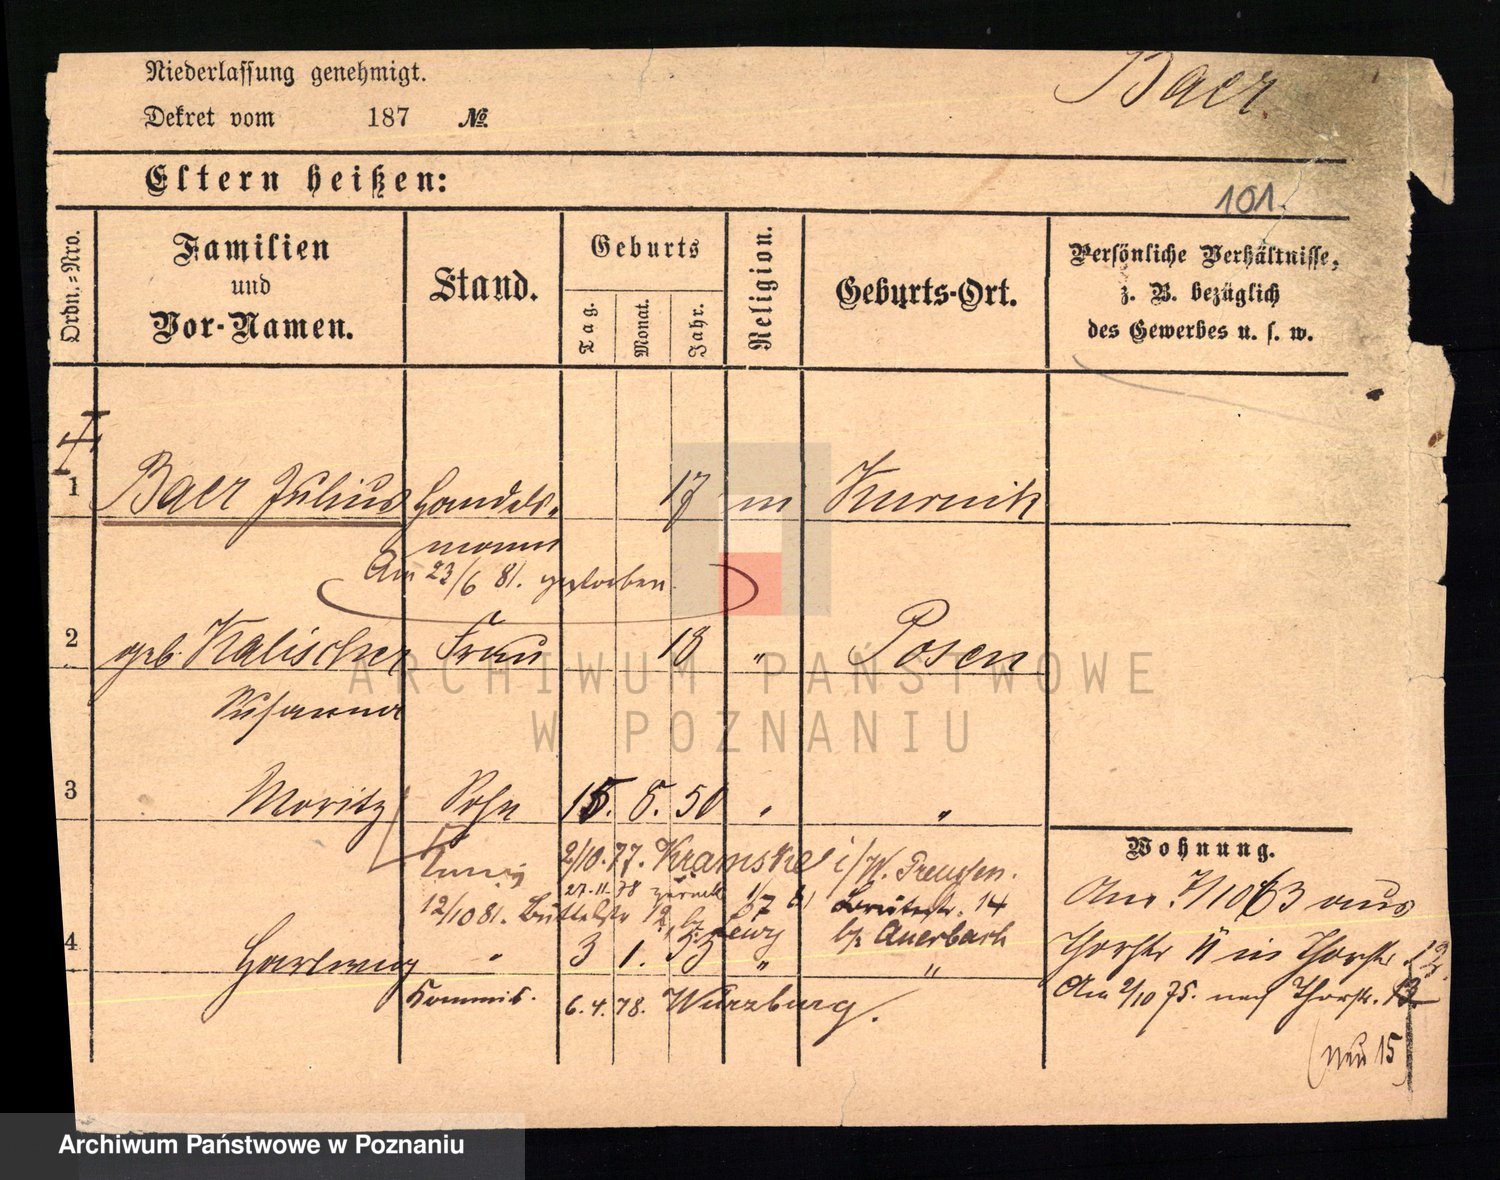 Niederlassung genehmigt.
Baer
Dekret vom 187 №.
Eltern heißen:
101.
Ordn.-Nro.
Familien und Vor-Namen.
Stand.
Geburts
Tag.
Monat.
Jahr.
Religion.
Geburts-Ort.
Persönliche Verhältnisse, z. B. bezüglich des Gewerbes u. s. w.
1 Baer Julius Handels- 17 m Kurnik
mann
Am 23/6 81. gestorben
2 geb. Kalischer Frau 18 " Posen
Susanna
3 Moritz Sohn 15. 8. 50 " "
Wohnung.
2/10. 77. Kramske i/W. Preußen.
27.11.78 zurück 1/7 81 Breitestr. 14
12/10 81. Büttelstr 12, by Lewy by Auerbach
4 Hartwig " 3 1. 53 " "
Kommis. 6. 4. 78. Würzburg.
Am 7/10 63 aus
Thorstr 11 in Thorstr 12.
Am 2/10 75. nach Thorstr. 13
(neu 15)
ARCHIWUM PAŃSTWOWE
W POZNANIU
Archiwum Państwowe w Poznaniu